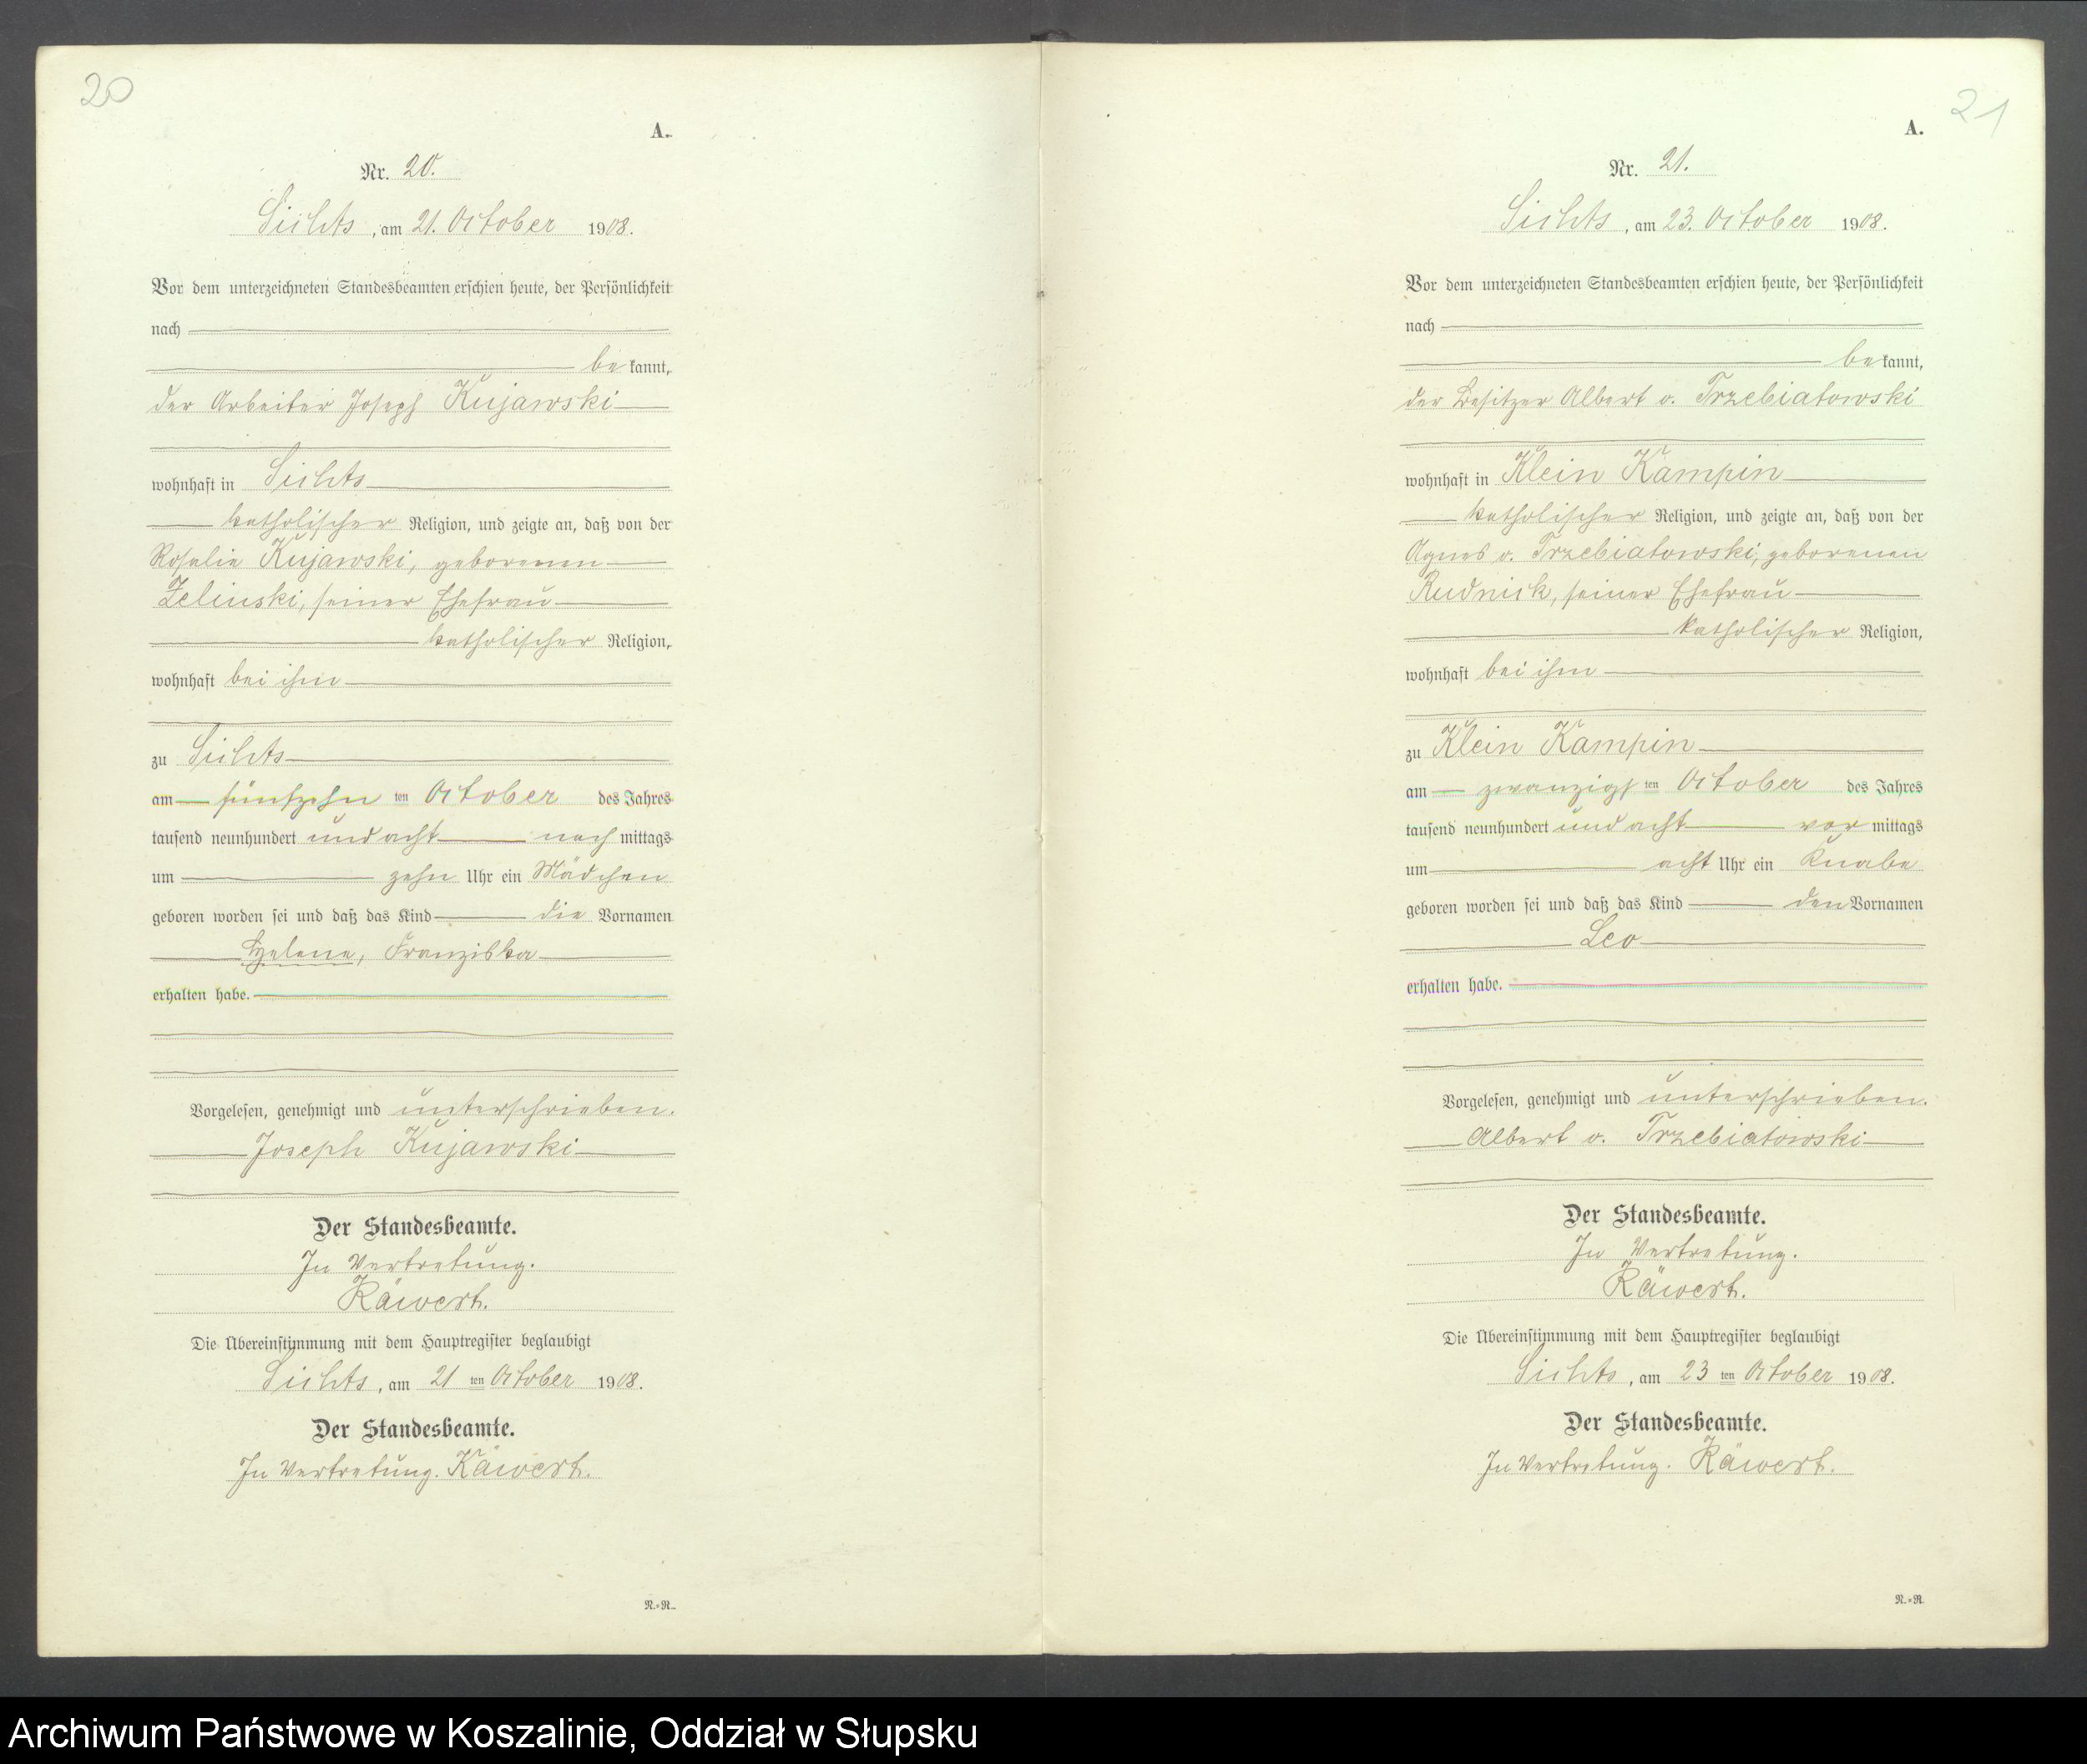 20
A.
Nr. 20.
Sichts, am 21. October 1908.
Vor dem unterzeichneten Standesbeamten erschien heute, der Persönlichkeit
nach
be kannt,
der Arbeiter Joseph Kujawski
wohnhaft in Sichts
katholischer Religion, und zeigte an, daß von der
Rosalie Kujawski, geborenen
Zelinski, seiner Ehefrau
katholischer Religion,
wohnhaft bei ihm
zu Sichts
am fünfzehn ten October des Jahres
tausend neunhundert und acht nach mittags
um zehn Uhr ein Mädchen
geboren worden sei und daß das Kind die Vornamen
Helene, Franziska
erhalten habe.
Vorgelesen, genehmigt und unterschrieben.
Joseph Kujawski
Der Standesbeamte.
In Vertretung.
Räwert.
Die Übereinstimmung mit dem Hauptregister beglaubigt
Sichts, am 21 ten October 1908.
Der Standesbeamte.
In Vertretung. Räwert.
N.=R.
21
A.
Nr. 21.
Sichts, am 23. October 1908.
Vor dem unterzeichneten Standesbeamten erschien heute, der Persönlichkeit
nach
be kannt,
der Besitzer Albert v. Trzebiatowski
wohnhaft in Klein Kampin
katholischer Religion, und zeigte an, daß von der
Agnes v. Trzebiatowski, geborenen
Rudnick, seiner Ehefrau
katholischer Religion,
wohnhaft bei ihm
zu Klein Kampin
am zwanzigs ten October des Jahres
tausend neunhundert und acht vor mittags
um acht Uhr ein Knabe
geboren worden sei und daß das Kind den Vornamen
Leo
erhalten habe.
Vorgelesen, genehmigt und unterschrieben.
Albert v. Trzebiatowski
Der Standesbeamte.
In Vertretung.
Räwert.
Die Übereinstimmung mit dem Hauptregister beglaubigt
Sichts, am 23 ten October 1908.
Der Standesbeamte.
In Vertretung. Räwert.
N.=R.
Archiwum Państwowe w Koszalinie, Oddział w Słupsku